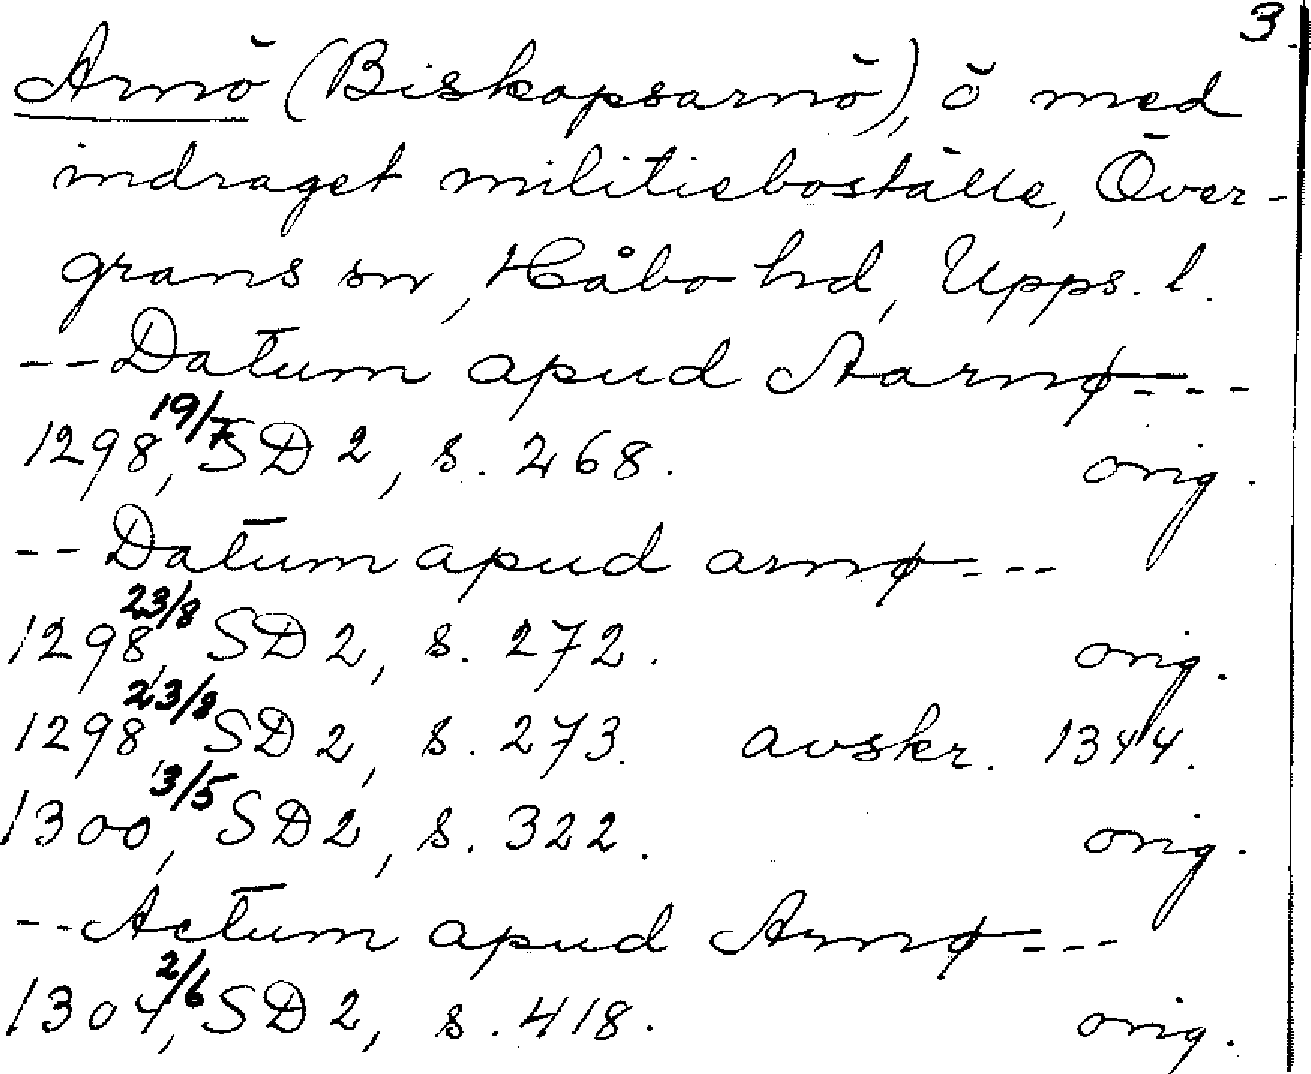 3.
Arnö (Biskopsarnö), ö med
indraget militieboställe, Över-
grans sn, Håbo hd, Upps. l.
-- Datum apud Aarnø ---
1298 19/7, SD 2, s. 268. orig.
-- Datum apud arnø ---
1298 23/8, SD 2, s. 272. orig.
1298 23/8, SD 2, s. 273. avskr. 1344.
1300 3/5, SD 2, s. 322. orig.
-- Actum apud Arnø ---
1304 2/6, SD 2, s. 418. orig.